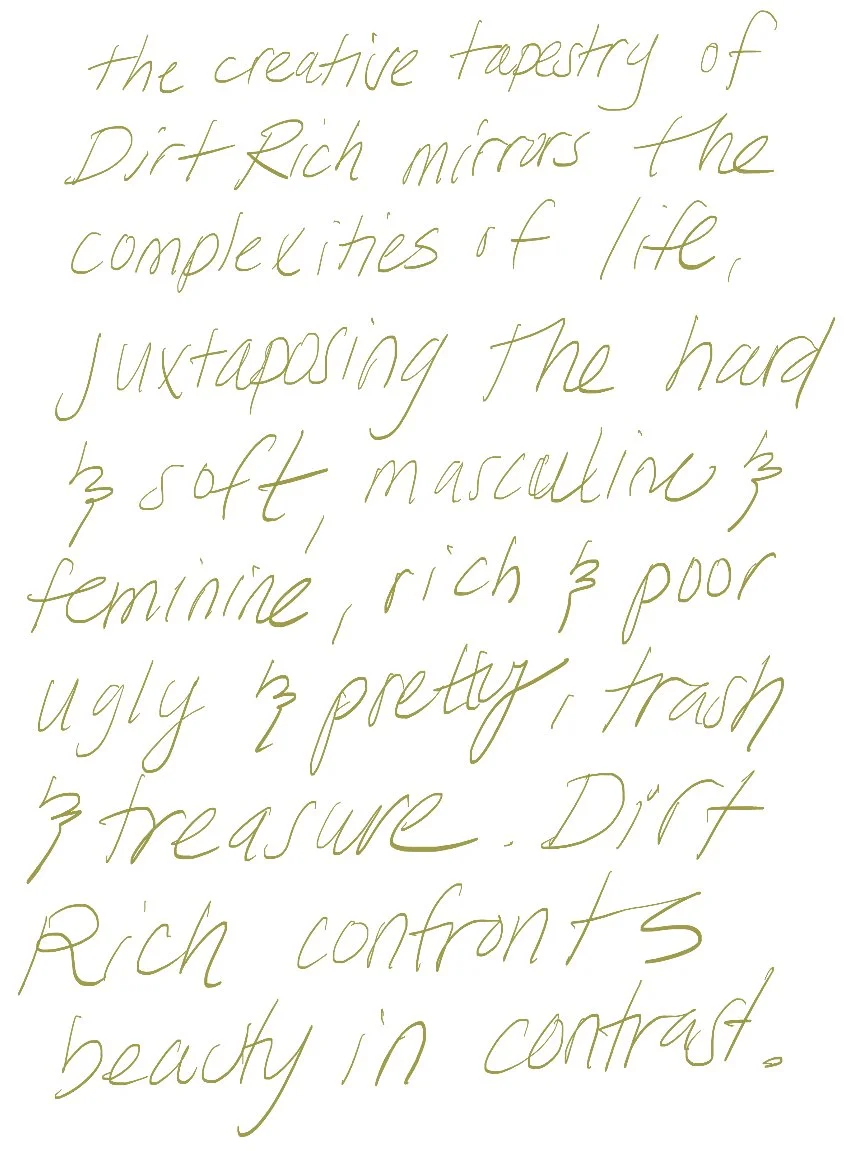 the creative tapestry of
Dirt Rich mirrors the
complexities of life,
juxtaposing the hard
& soft, masculine &
feminine, rich & poor
ugly & pretty, trash
& treasure. Dirt
Rich confronts
beauty in contrast.